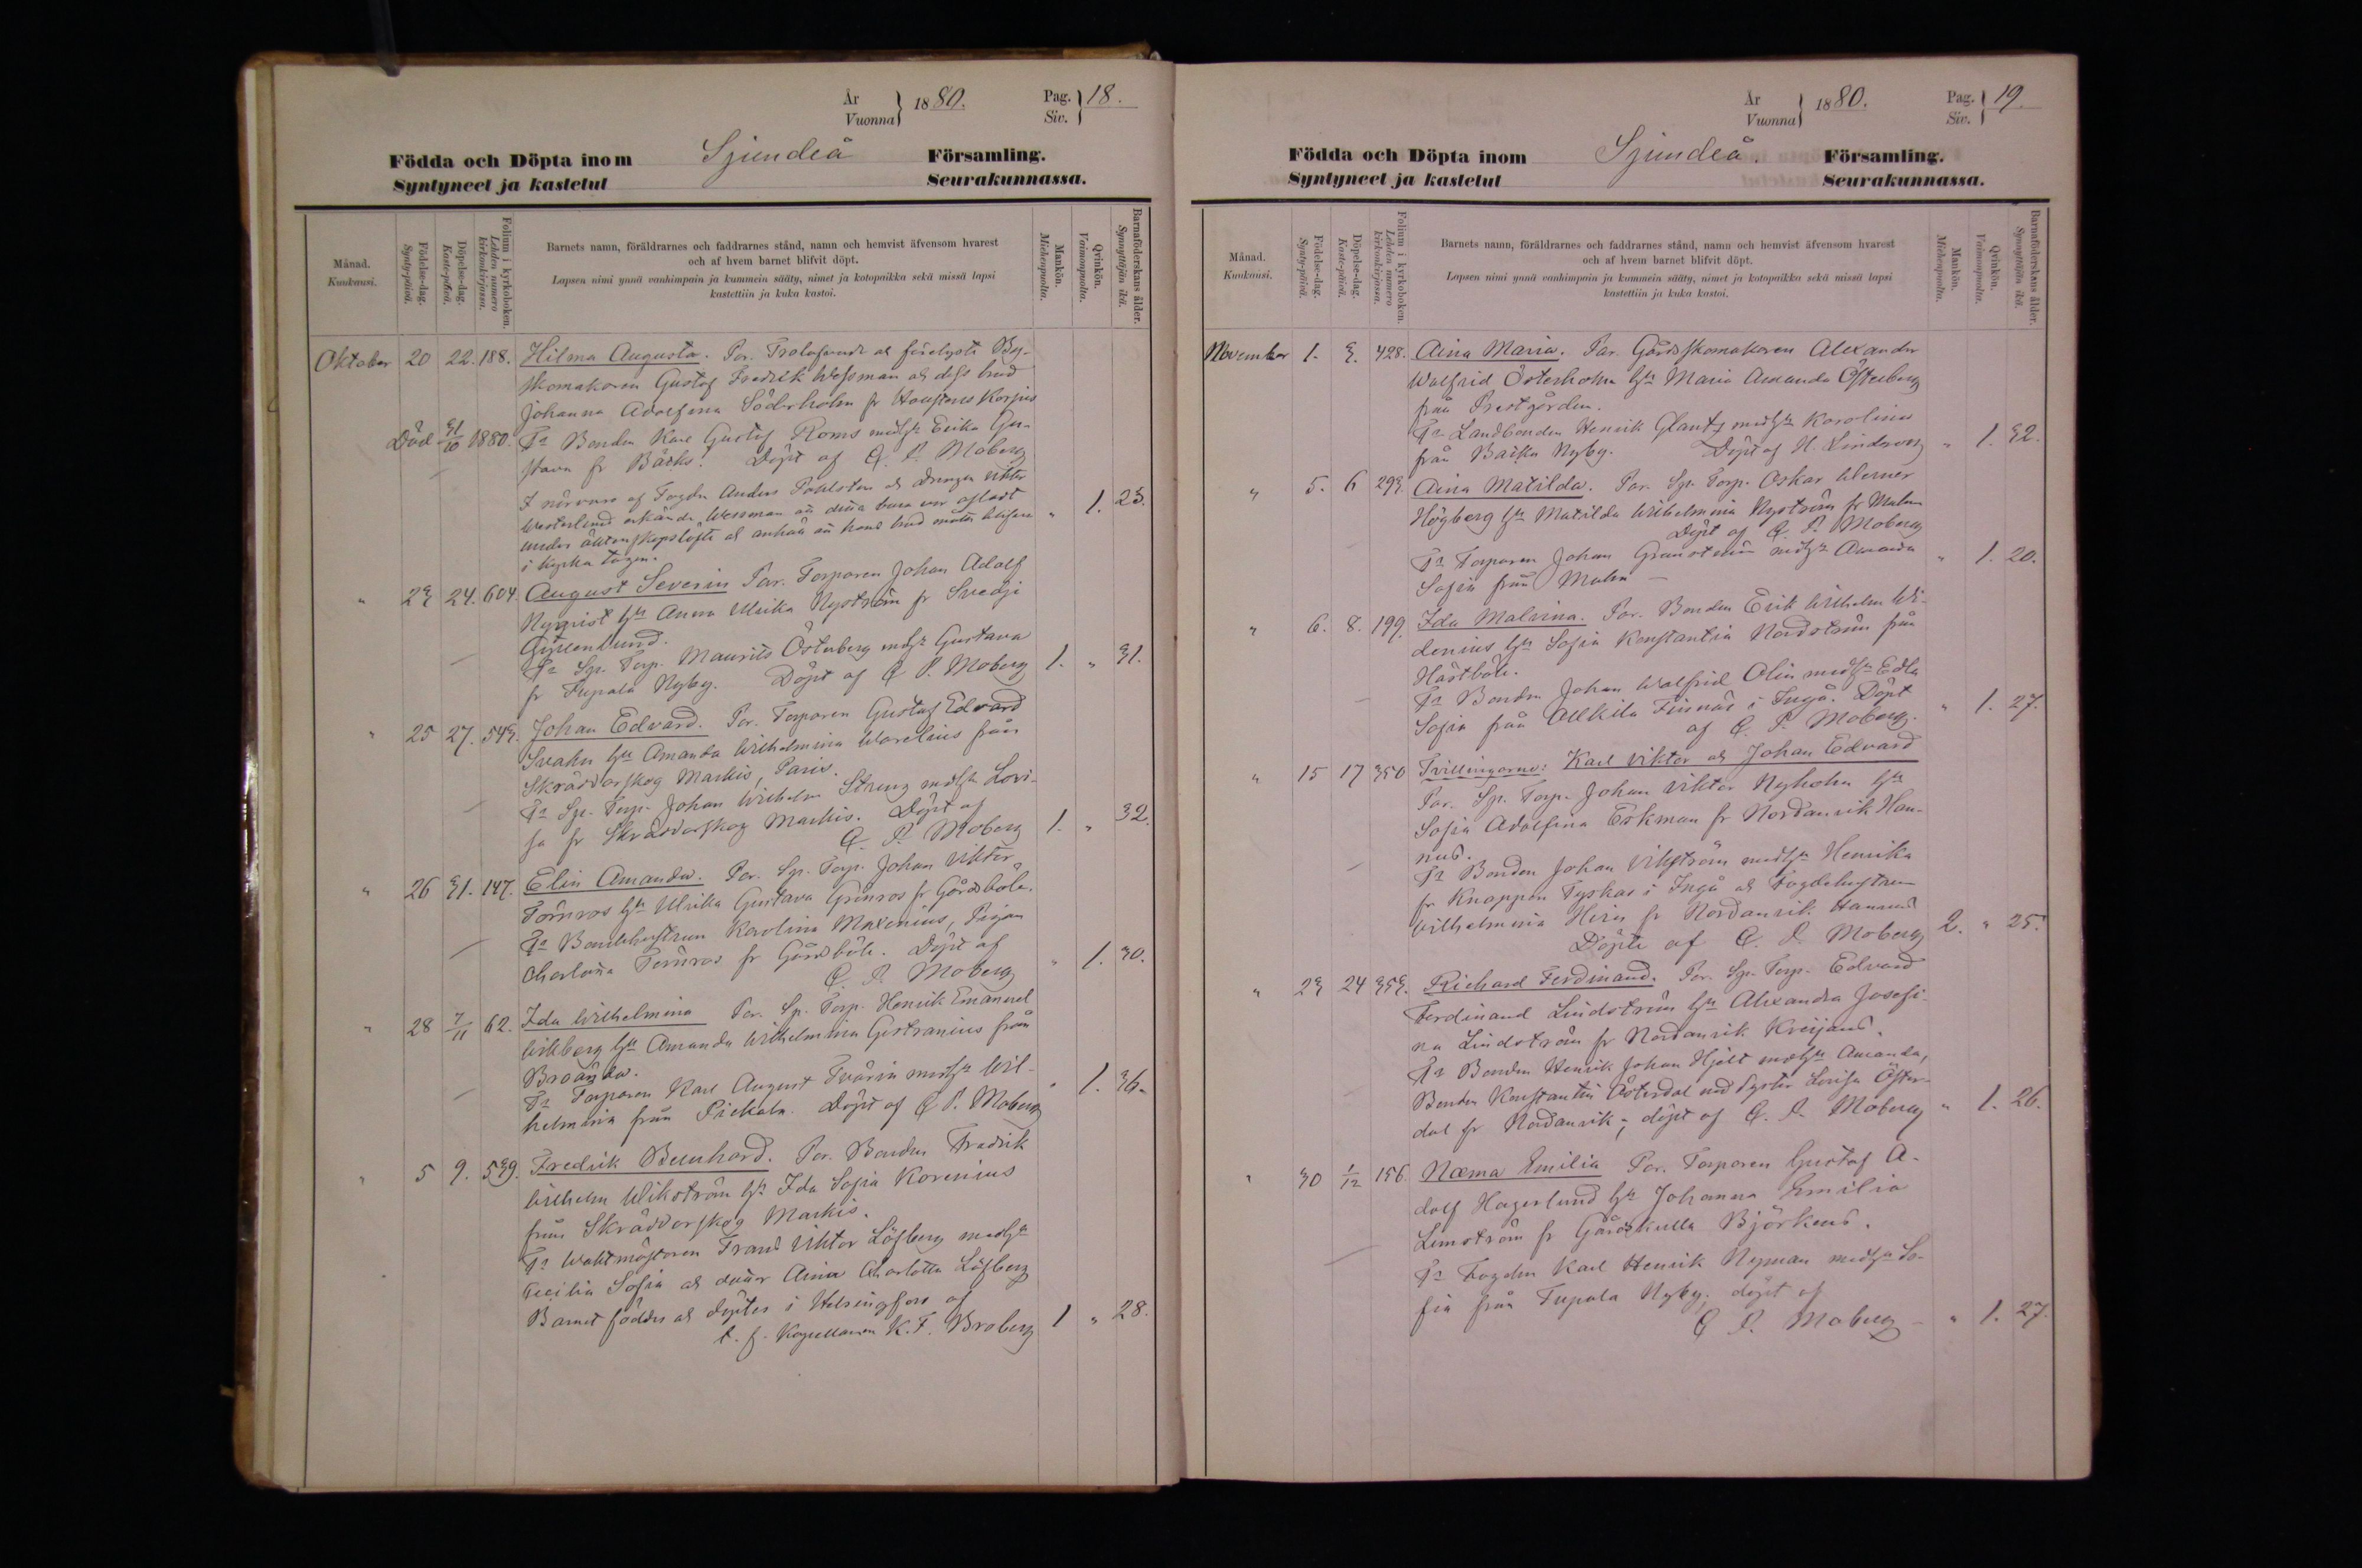 År 1880. Pag. 18.
Vuonna Siv.
Födda och Döpta inom Sjundeå Församling.
Syntyneet ja kastetut Seurakunnassa.
Månad.
Kuukausi.
Födelse-dag.
Synty-päivä.
Döpelse-dag.
Kaste-päivä.
Folium i kyrkoboken.
Lehden numero kirkonkirjassa.
Barnets namn, föräldrarnes och faddrarnes stånd, namn och hemvist äfvensom hvarest
och af hvem barnet blifvit döpt.
Lapsen nimi ynnä vanhimpain ja kummein sääty, nimet ja kotopaikka sekä missä lapsi
kastettiin ja kuka kastoi.
Mankön.
Miehenpuolta.
Qvinkön.
Vaimonpuolta.
Barnaföderskans ålder.
Synnyttäjän ikä.
Oktober 20 22. 188. Hilma Augusta. Par. Trolofvade By-
skomakaren Gustaf Fredrik Wessman och dess brud
Johanna Adolfina Söderholm fr Korpus
Död 31/10 1880. Fr Bonden Karl Gustaf Roms medh Erika Gu-
stava fr Bäcks. Döpt af G. P. Moberg
I närvaro af Fogden Anders och Drengen Viktor
Westerlund erkände Wessman att detta barn var afladt
under äktenskapslöfte och att hans brud måtte
i kyrkotagen. " 1. 25.
" 23 24. 604. August Severin Par. Torparen Johan Adolf
Nyqvist hu Anna Ulrika Nyström fr Svedji
Gyllenlund.
Fr Sp. Torp. Maurits Österberg medh Gustava
fr Tupala Nyby. Döpt af G P. Moberg 1. " 31.
" 25 27. 543. Johan Edvard. Par. Torparen Gustaf Edvard
Svahn hu Amanda Wilhelmina Warelius från
Skräddarskog Markis, Paris.
Fr Sp. Torp. Johan Wilhelm Streng medh Lovi-
sa fr Skräddarskog Markis. Döpt af
G. P. Moberg 1. " 32.
" 26 31. 147. Elin Amanda. Par. Sp. Torp. Johan Viktor
Törnros hu Ulrika Gustava Grönros fr Gårdsböle.
Fr Bondehustrun Karolina Maxenius, Pigan
Charlotta Törnros fr Gårdsböle. Döpt af
G. P. Moberg " 1. 30.
" 28 7/11 62. Ida Wilhelmina Par. Sp. Torp. Henrik Emanuel
Wikberg hu Amanda Wilhelmina Gestranius från
Broända.
Fr Torparen Karl August Tvärin medh Wil-
helmina från Pickala. Döpt af G P. Moberg " 1. 36.
" 5 9. 539. Fredrik Bernhard. Par. Bonden Fredrik
Wilhelm Wikström hu Ida Sofia Korenius
från Skräddarskog Markis.
Fr Waktmästaren Frans Viktor Löfberg medh
Cecilia Sofia och dotter Aina Charlotta Löfberg
Barnet föddes och döptes i Helsingfors af
t. f. Kapellanen K. F. Broberg 1 " 28.
År 1880. Pag. 19.
Vuonna Siv.
Födda och Döpta inom Sjundeå Församling.
Syntyneet ja kastetut Seurakunnassa.
Månad.
Kuukausi.
Födelse-dag.
Synty-päivä.
Döpelse-dag.
Kaste-päivä.
Folium i kyrkoboken.
Lehden numero kirkonkirjassa.
Barnets namn, föräldrarnes och faddrarnes stånd, namn och hemvist äfvensom hvarest
och af hvem barnet blifvit döpt.
Lapsen nimi ynnä vanhimpain ja kummein sääty, nimet ja kotopaikka sekä missä lapsi
kastettiin ja kuka kastoi.
Mankön.
Miehenpuolta.
Qvinkön.
Vaimonpuolta.
Barnaföderskans ålder.
Synnyttäjän ikä.
November 1. 3. 428. Aina Maria. Par. Gårdsskomakaren Alexander
Walfrid Österholm hu Maria Amanda Österberg
från Prestgården.
Fr Landbonden Henrik Glantz medh Karolina
från Backa Nyby. Döpt af H. Lindroos " 1. 32.
" 5. 6 293. Aina Matilda. Par. Sp. Torp. Oskar Werner
Högberg hu Matilda Wilhelmina Nyström fr Malm
Döpt af G. P. Moberg
Fr Torparen Johan Granström medh Amanda
Sofia från Malm " 1. 20.
" 6. 8. 199. Ida Malvina. Par. Bonden Erik Wilhelm Wi-
denius hu Sofia Konstantia Nordström från
Hästböle.
Fr Bonden Johan Walfrid Olin medh Edla
Sofia från Allkila Finnäs i Ingå. Döpt
af G. P. Moberg. " 1. 27.
" 15 17 350 Tvillingarne: Karl Viktor och Johan Edvard
Par. Sp. Torp. Johan Viktor Nyholm hu
Sofia Adolfina Eskman fr Nordanvik Han-
nus.
Fr Bonden Johan Wikström medh Henrika
fr Knappen Tyskas i Ingå och Fogdehustrun
Wilhelmina fr Nordanvik Hannus
Döpte af G. P. Moberg 2. " 25.
" 23 24 353. Richard Ferdinand. Par. Sp. Torp. Edvard
Ferdinand Lindström hu Alexandra Josefi-
na Lindström fr Nordanvik Kreijans.
Fr Bonden Henrik Johan Hjelt medh Amanda,
Bonden Konstantin Österdal med syster Lovisa Öster-
dal fr Nordanvik; döpt af G. P. Moberg " 1. 26.
" 30 1/12 156. Naema Emilia Par. Torparen Gustaf A-
dolf Hagerlund hu Johanna Emilia
Lemström fr Gårdskulla Björkens.
Fr Fogden Karl Henrik Nyman medh So-
fia från Tupala Nyby; döpt af
G P. Moberg " 1. 27.